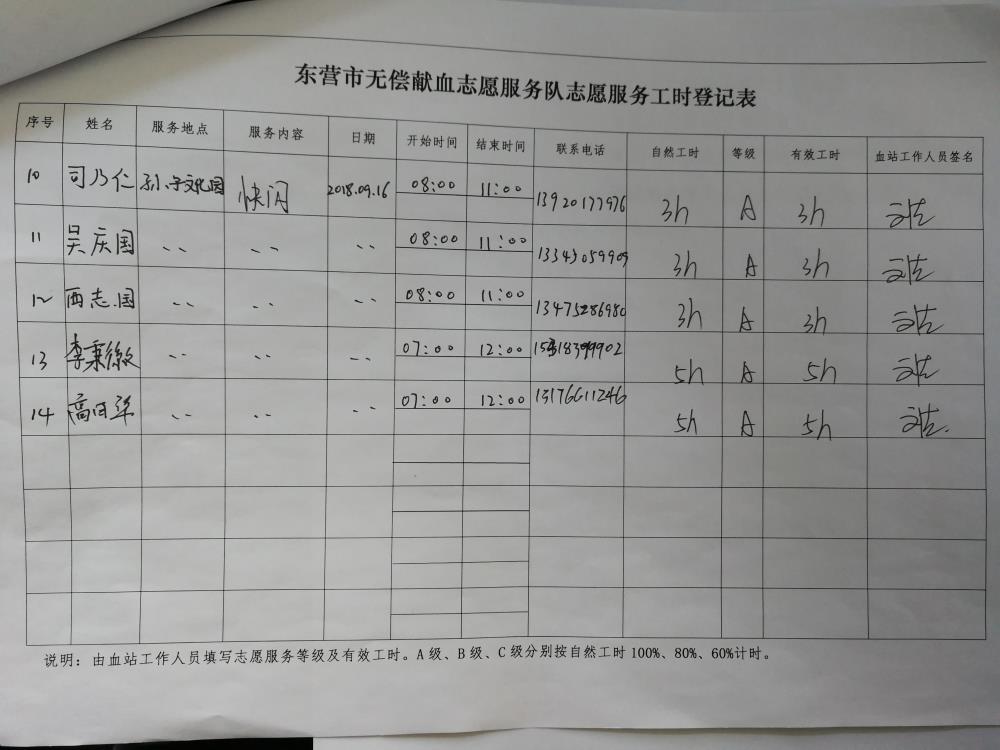 东营市无偿献血志愿服务队志愿服务工时登记表
序号 姓名 服务地点 服务内容 日期 开始时间 结束时间 联系电话 自然工时 等级 有效工时 血站工作人员签名
10 司乃仁 孙子文化园 快闪 2018.09.16 08:00 11:00 13920177976 3h A 3h
11 吴庆国 、、 、、 、、 08:00 11:00 13343059909 3h A 3h
12 西志国 、、 、、 、、 08:00 11:00 13475286980 3h A 3h
13 李秉徽 、、 、、 、、 07:00 12:00 5h A 5h
14 高日华 、、 、、 、、 07:00 12:00 13176611246 5h A 5h
说明：由血站工作人员填写志愿服务等级及有效工时。A级、B级、C级分别按自然工时100%、80%、60%计时。